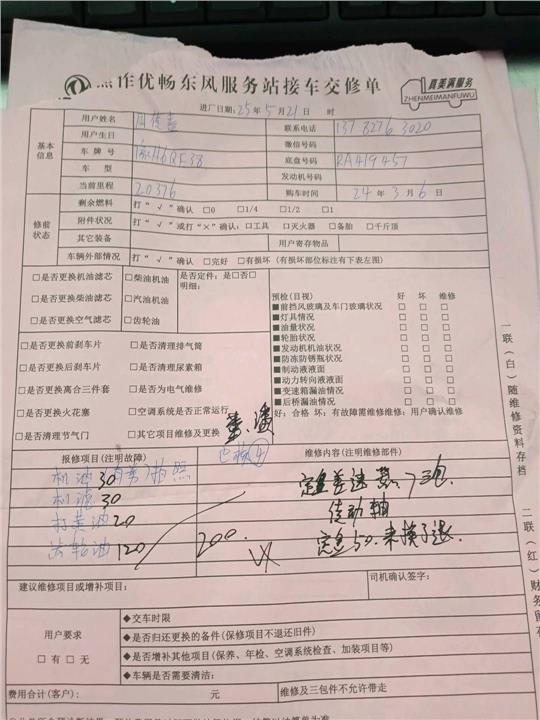 焦作优畅东风服务站接车交修单
真美满服务
ZHENMEIMANFUWU
进厂日期：25年5月21日 时
基本信息
用户姓名
联系电话 137 8276 3020
用户生日 微信号码
车牌号 底盘号码 RA419457
车型 发动机号码
当前里程 20376 购车时间 24年3月6日
修前状态
剩余燃油 打“√”确认 □0 □1/4 □1/2 □1
附件状况 打“√”或打“×”确认：□工具 □灭火器 □备胎 □千斤顶
其它装备 用户寄存物品
车辆外部情况 打“√”确认 □完好 □有损坏（有损坏部位标注有下表左图）
□是否更换机油滤芯 □柴油机油 是否定件：是□否□
明细：
□是否更换柴油滤芯 □汽油机油
□是否更换空气滤芯 □齿轮油
□是否更换前刹车片 □是否清理排气筒
□是否更换后刹车片 □是否清理尿素箱
□是否更换离合三件套 □是否为电气维修
□是否更换火花塞 □空调系统是否正常运行
□是否清理节气门 □其它项目维修及更换
预检(目视) 好 坏 维修
■前挡风玻璃及车门玻璃状况 □ □ □
■灯具情况 □ □ □
■油量状况 □ □ □
■轮胎状况 □ □ □
■发动机机油状况 □ □ □
■防冻防锈瓶状况 □ □ □
■制动液液面 □ □ □
■动力转向液液面 □ □ □
■变速箱漏油情况 □ □ □
■后桥漏油情况 □ □ □
好：合格 坏：有故障需维修维修：用户确认维修
报修项目(注明故障) 维修内容(注明维修部件)
机油30
机滤30
打黄油20
齿轮油120
200
传动轴
建议维修项目或增补项目： 司机确认签字：
用户要求
□有□无
◆交车时限
◆是否归还更换的备件(保修项目不退还旧件)
◆是否增补其他项目(保养、年检、空调系统检查、加装项目等)
◆车辆是否需要清洁：
费用合计(客户)： 元 维修及三包件不允许带走
一联（白）随维修资料存档
二联（红）财务留存